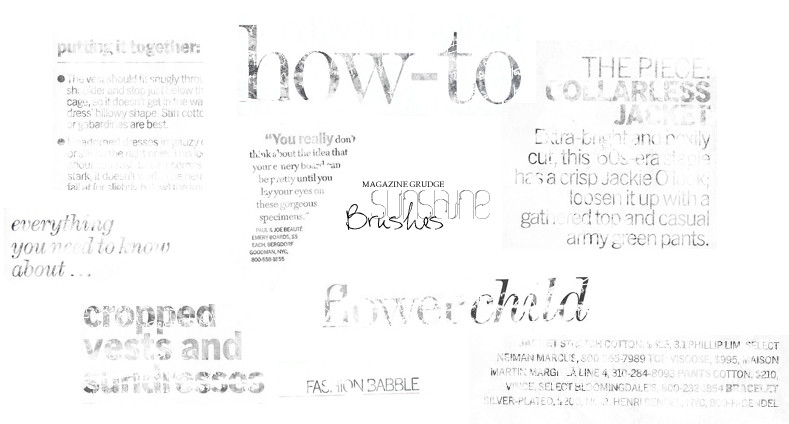 how-to
putting it together:
The vest should fit snugly
shoulder and stop just below the
cage, so it doesn't get in the way
dress' billowy shape. Stiff cotton
or gabardines are best.
THE PIECE:
COLLARLESS
JACKET
Extra-bright and boxily
cut, this '60s-era staple
has a crisp Jackie O look;
loosen it up with a
gathered top and casual
army green pants.
"You really don't
think about the idea that
your emery board can
be pretty until you
lay your eyes on
these gorgeous
specimens."
PAUL & JOE BEAUTE
EMERY BOARDS, $5
EACH, BERGDORF
GOODMAN, NYC,
MAGAZINE GRUDGE
sunshine
Brushes
everything
you need to know
about ...
flower child
cropped
vests and
sundresses
FASHION BABBLE
COTTON, 3.1 PHILLIP LIM, SELECT
NEIMAN MARCUS, VISCOSE, $995, MAISON
MARTIN MARGIELA LINE 4, 310-284-8093 PANTS COTTON, $210,
VINCE, SELECT BLOOMINGDALE'S, BRACELET
SILVER-PLATED, HENRI BENDEL, NYC, BENDEL